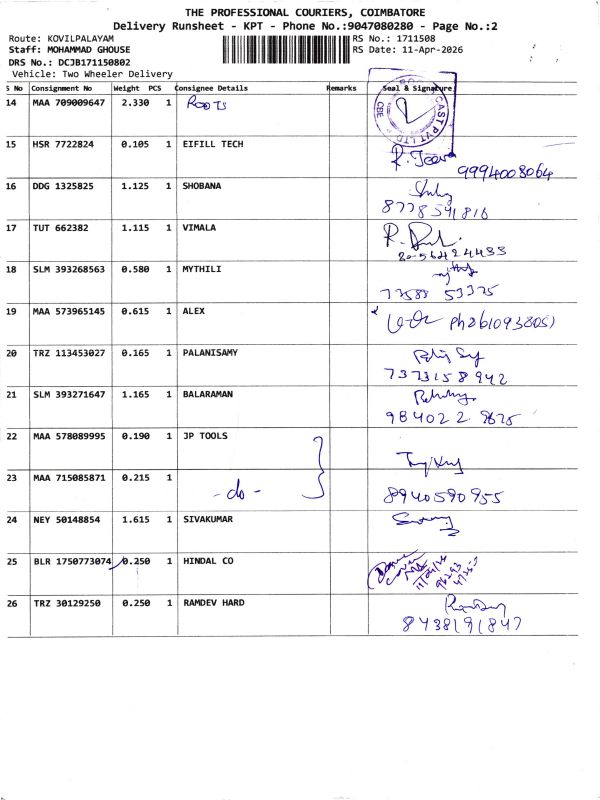 THE PROFESSIONAL COURIERS, COIMBATORE
Delivery Runsheet - KPT - Phone No.:9047080280 - Page No.:2
Route: KOVILPALAYAM RS No.: 1711508
Staff: MOHAMMAD GHOUSE RS Date: 11-Apr-2026
DRS No.: DCJB171150802
Vehicle: Two Wheeler Delivery
S No Consignment No Weight PCS Consignee Details Remarks Seal & Signature
14 MAA 709009647 2.330 1 ROOTS
CAST PVT LTD CBE
15 HSR 7722824 0.105 1 EIFILL TECH
9994008064
16 DDG 1325825 1.125 1 SHOBANA
8778591816
17 TUT 662382 1.115 1 VIMALA
8056424433
18 SLM 393268563 0.580 1 MYTHILI
53325
19 MAA 573965145 0.615 1 ALEX
20 TRZ 113453027 0.165 1 PALANISAMY
7373158942
21 SLM 393271647 1.165 1 BALARAMAN
984022
22 MAA 578089995 0.190 1 JP TOOLS
23 MAA 715085871 0.215 1 -do-
8940590955
24 NEY 50148854 1.615 1 SIVAKUMAR
25 BLR 1750773074 0.250 1 HINDAL CO
26 TRZ 30129250 0.250 1 RAMDEV HARD
8438191847